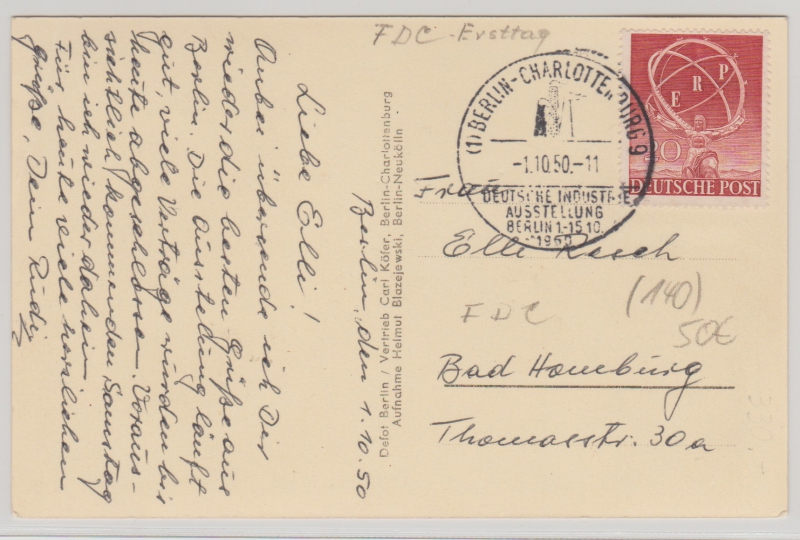 FDC - Ersttag
Berlin, den 1.10.50
Liebe Elli!
Anbei übersende ich Dir
wieder die besten Grüße aus
Berlin. Die Ausstellung läuft
gut, viele Verträge wurden bis
heute abgeschlossen. Voraus-
sichtlich kommenden Samstag
bin ich wieder daheim.
Für heute viele herzlichen
Grüße, Dein Rudi
Defot Berlin / Vertrieb Carl Köfer, Berlin-Charlottenburg
Aufnahme Helmut Blazejewski, Berlin-Neukölln
(1) BERLIN-CHARLOTTENBURG 9
-1.10.50.-11
DEUTSCHE INDUSTRIE
AUSSTELLUNG
BERLIN 1.-15.10.
1950
ERP
20
DEUTSCHE POST
Frau
Elli Rasch
FDC
(140)
50€
Bad Homburg
Thomasstr. 30a